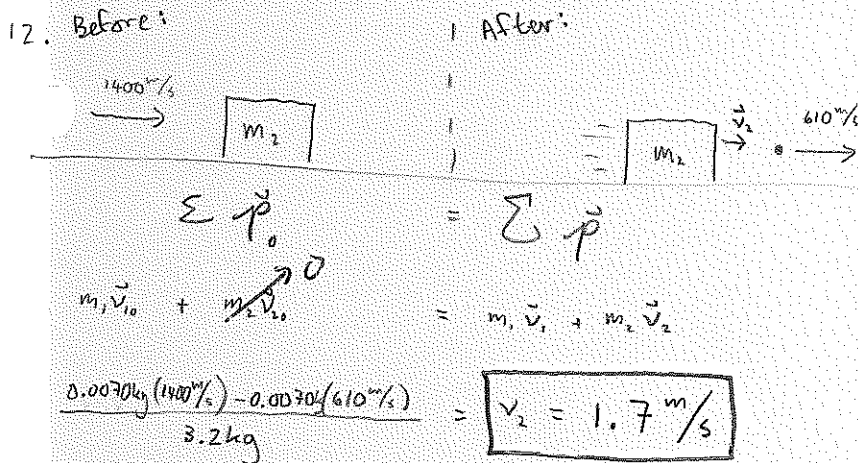 12. Before: After:
1400 m/s
m₂ m₂ v⃗₂ 610 m/s
Σ p⃗₀ = Σ p⃗
m₁v⃗₁₀ + m₂v⃗₂₀ 0 = m₁v⃗₁ + m₂v⃗₂
0.0070kg(1400 m/s) - 0.0070(610 m/s)
3.2kg
= v₂ = 1.7 m/s